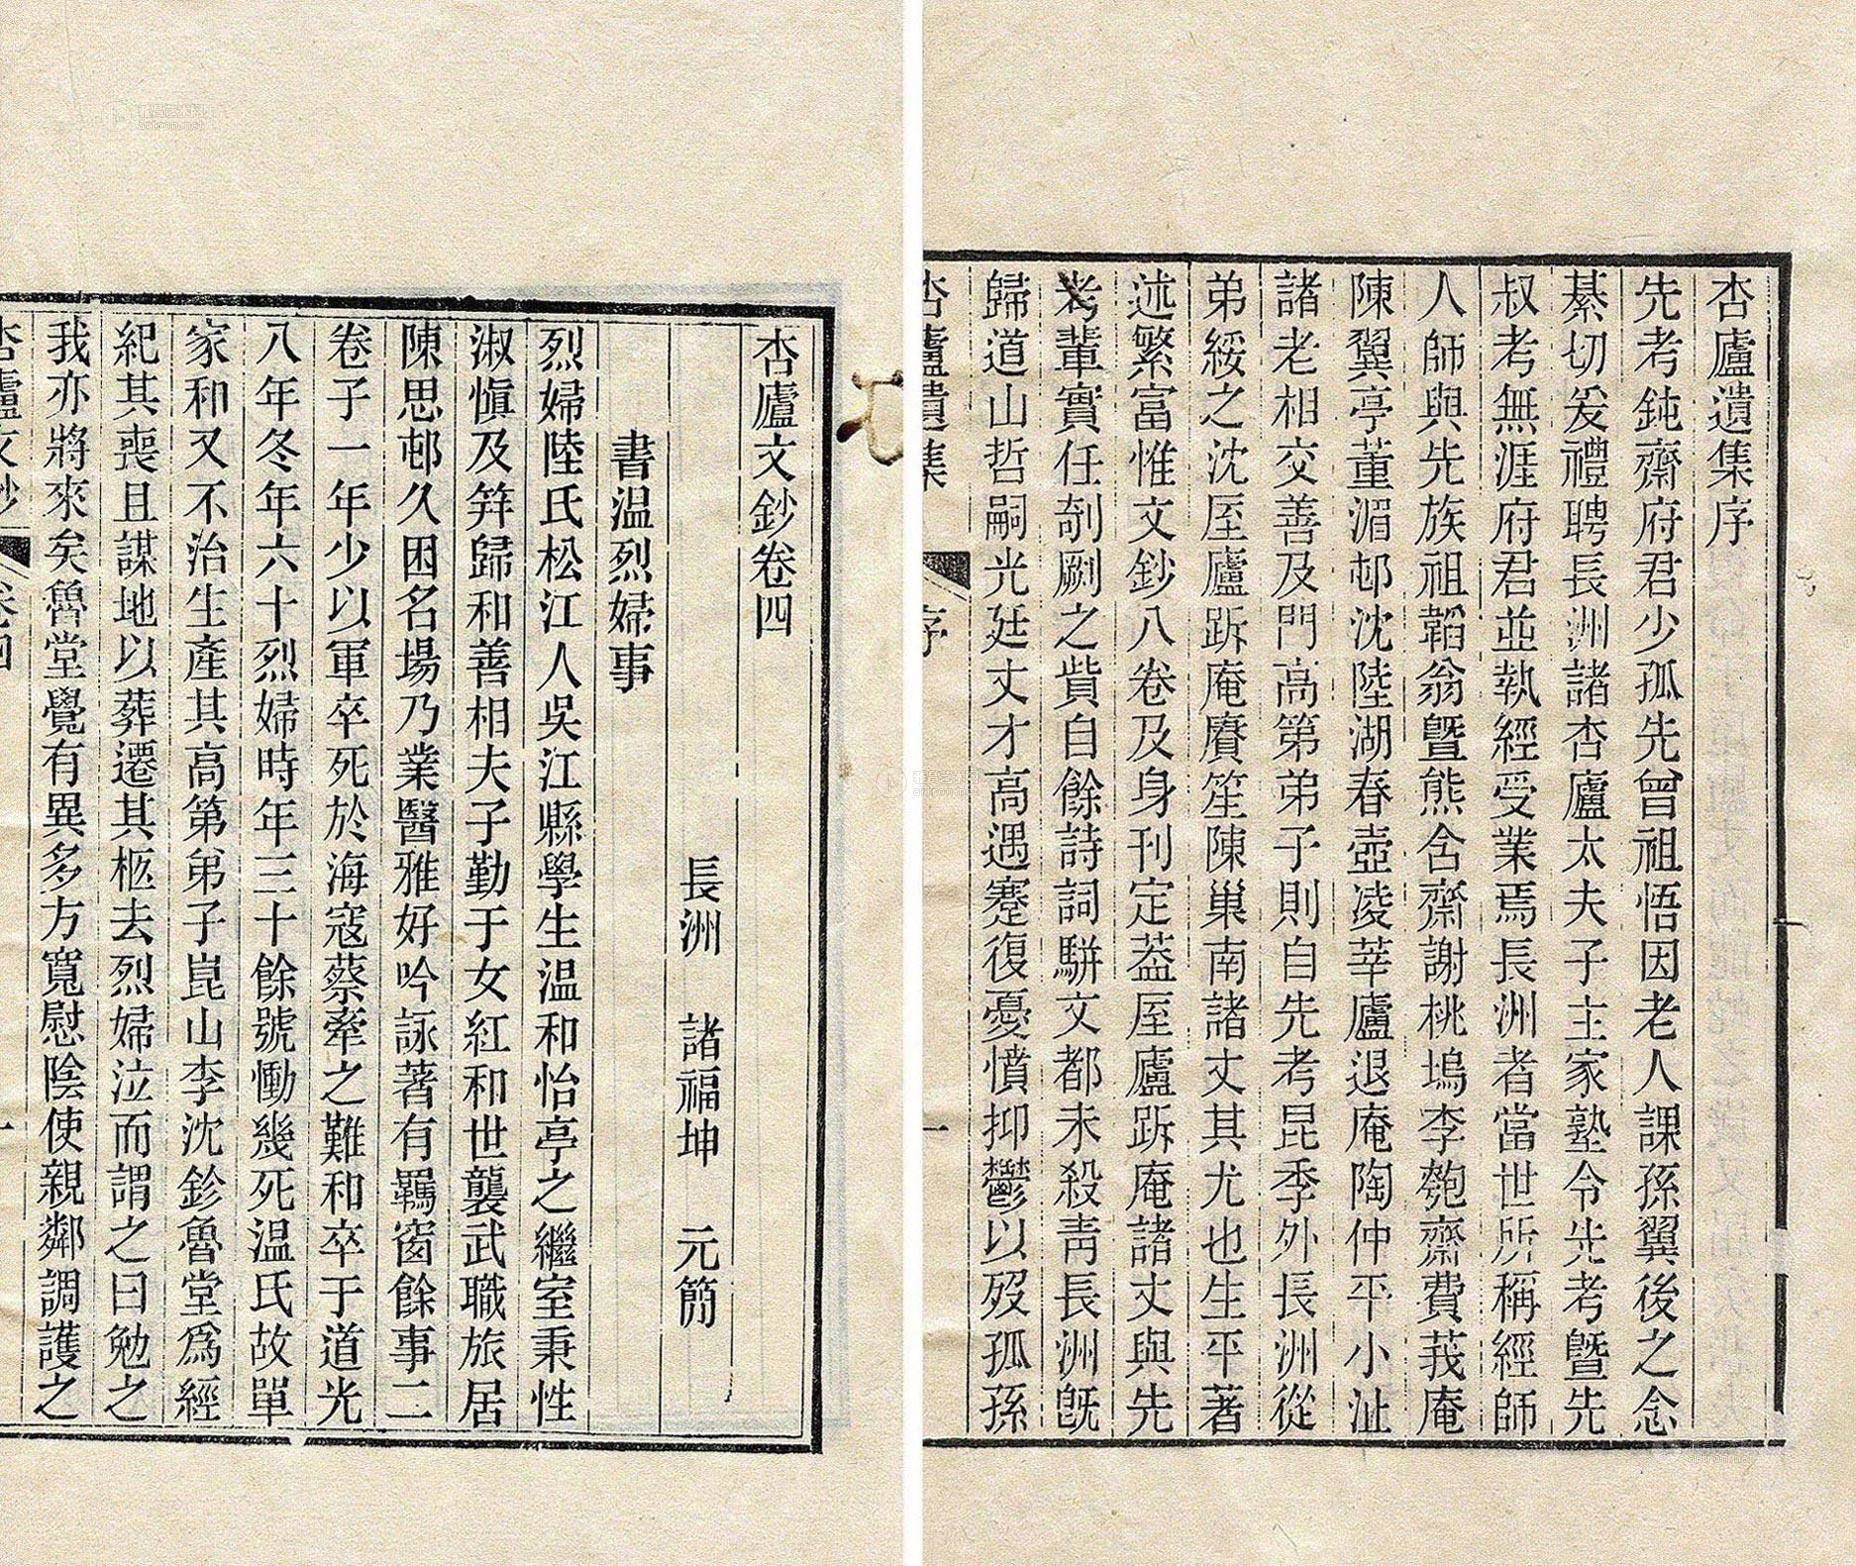 杏廬遺集序
先考鈍齋府君少孤先曾祖悟因老人課孫翼後之念
綦切爰禮聘長洲諸杏廬太夫子主家塾令先考暨先
叔考無涯府君並執經受業焉長洲者當世所稱經師
人師與先族祖韜翁暨熊含齋謝桃塢李匏齋費莪庵
陳翼亭董湄邨沈陸湖春壺凌莘廬退庵陶仲平小沚
諸老相交善及門高第弟子則自先考昆季外長洲從
弟綏之沈厔廬跅庵賡笙陳巢南諸丈其尤也生平著
述繁富惟文鈔八卷及身刊定葢厔廬跅庵諸丈與先
考輩實任剞劂之貲自餘詩詞駢文都未殺靑長洲旣
歸道山哲嗣光廷丈才高遇蹇復憂憤抑鬱以歿孤孫
杏廬遺集
序
一
杏廬文鈔卷四
長洲 諸福坤 元簡
書温烈婦事
烈婦陸氏松江人吳江縣學生温和怡亭之繼室秉性
淑愼及笄歸和善相夫子勤于女紅和世襲武職旅居
陳思邨久困名場乃業醫雅好吟詠著有羈窗餘事二
卷子一年少以軍卒死於海寇蔡牽之難和卒于道光
八年冬年六十烈婦時年三十餘號慟幾死温氏故單
家和又不治生產其高第弟子崑山李沈鉁魯堂爲經
紀其喪且謀地以葬遷其柩去烈婦泣而謂之曰勉之
我亦將來矣魯堂覺有異多方寬慰陰使親鄰調護之
杏廬文鈔
卷四
一